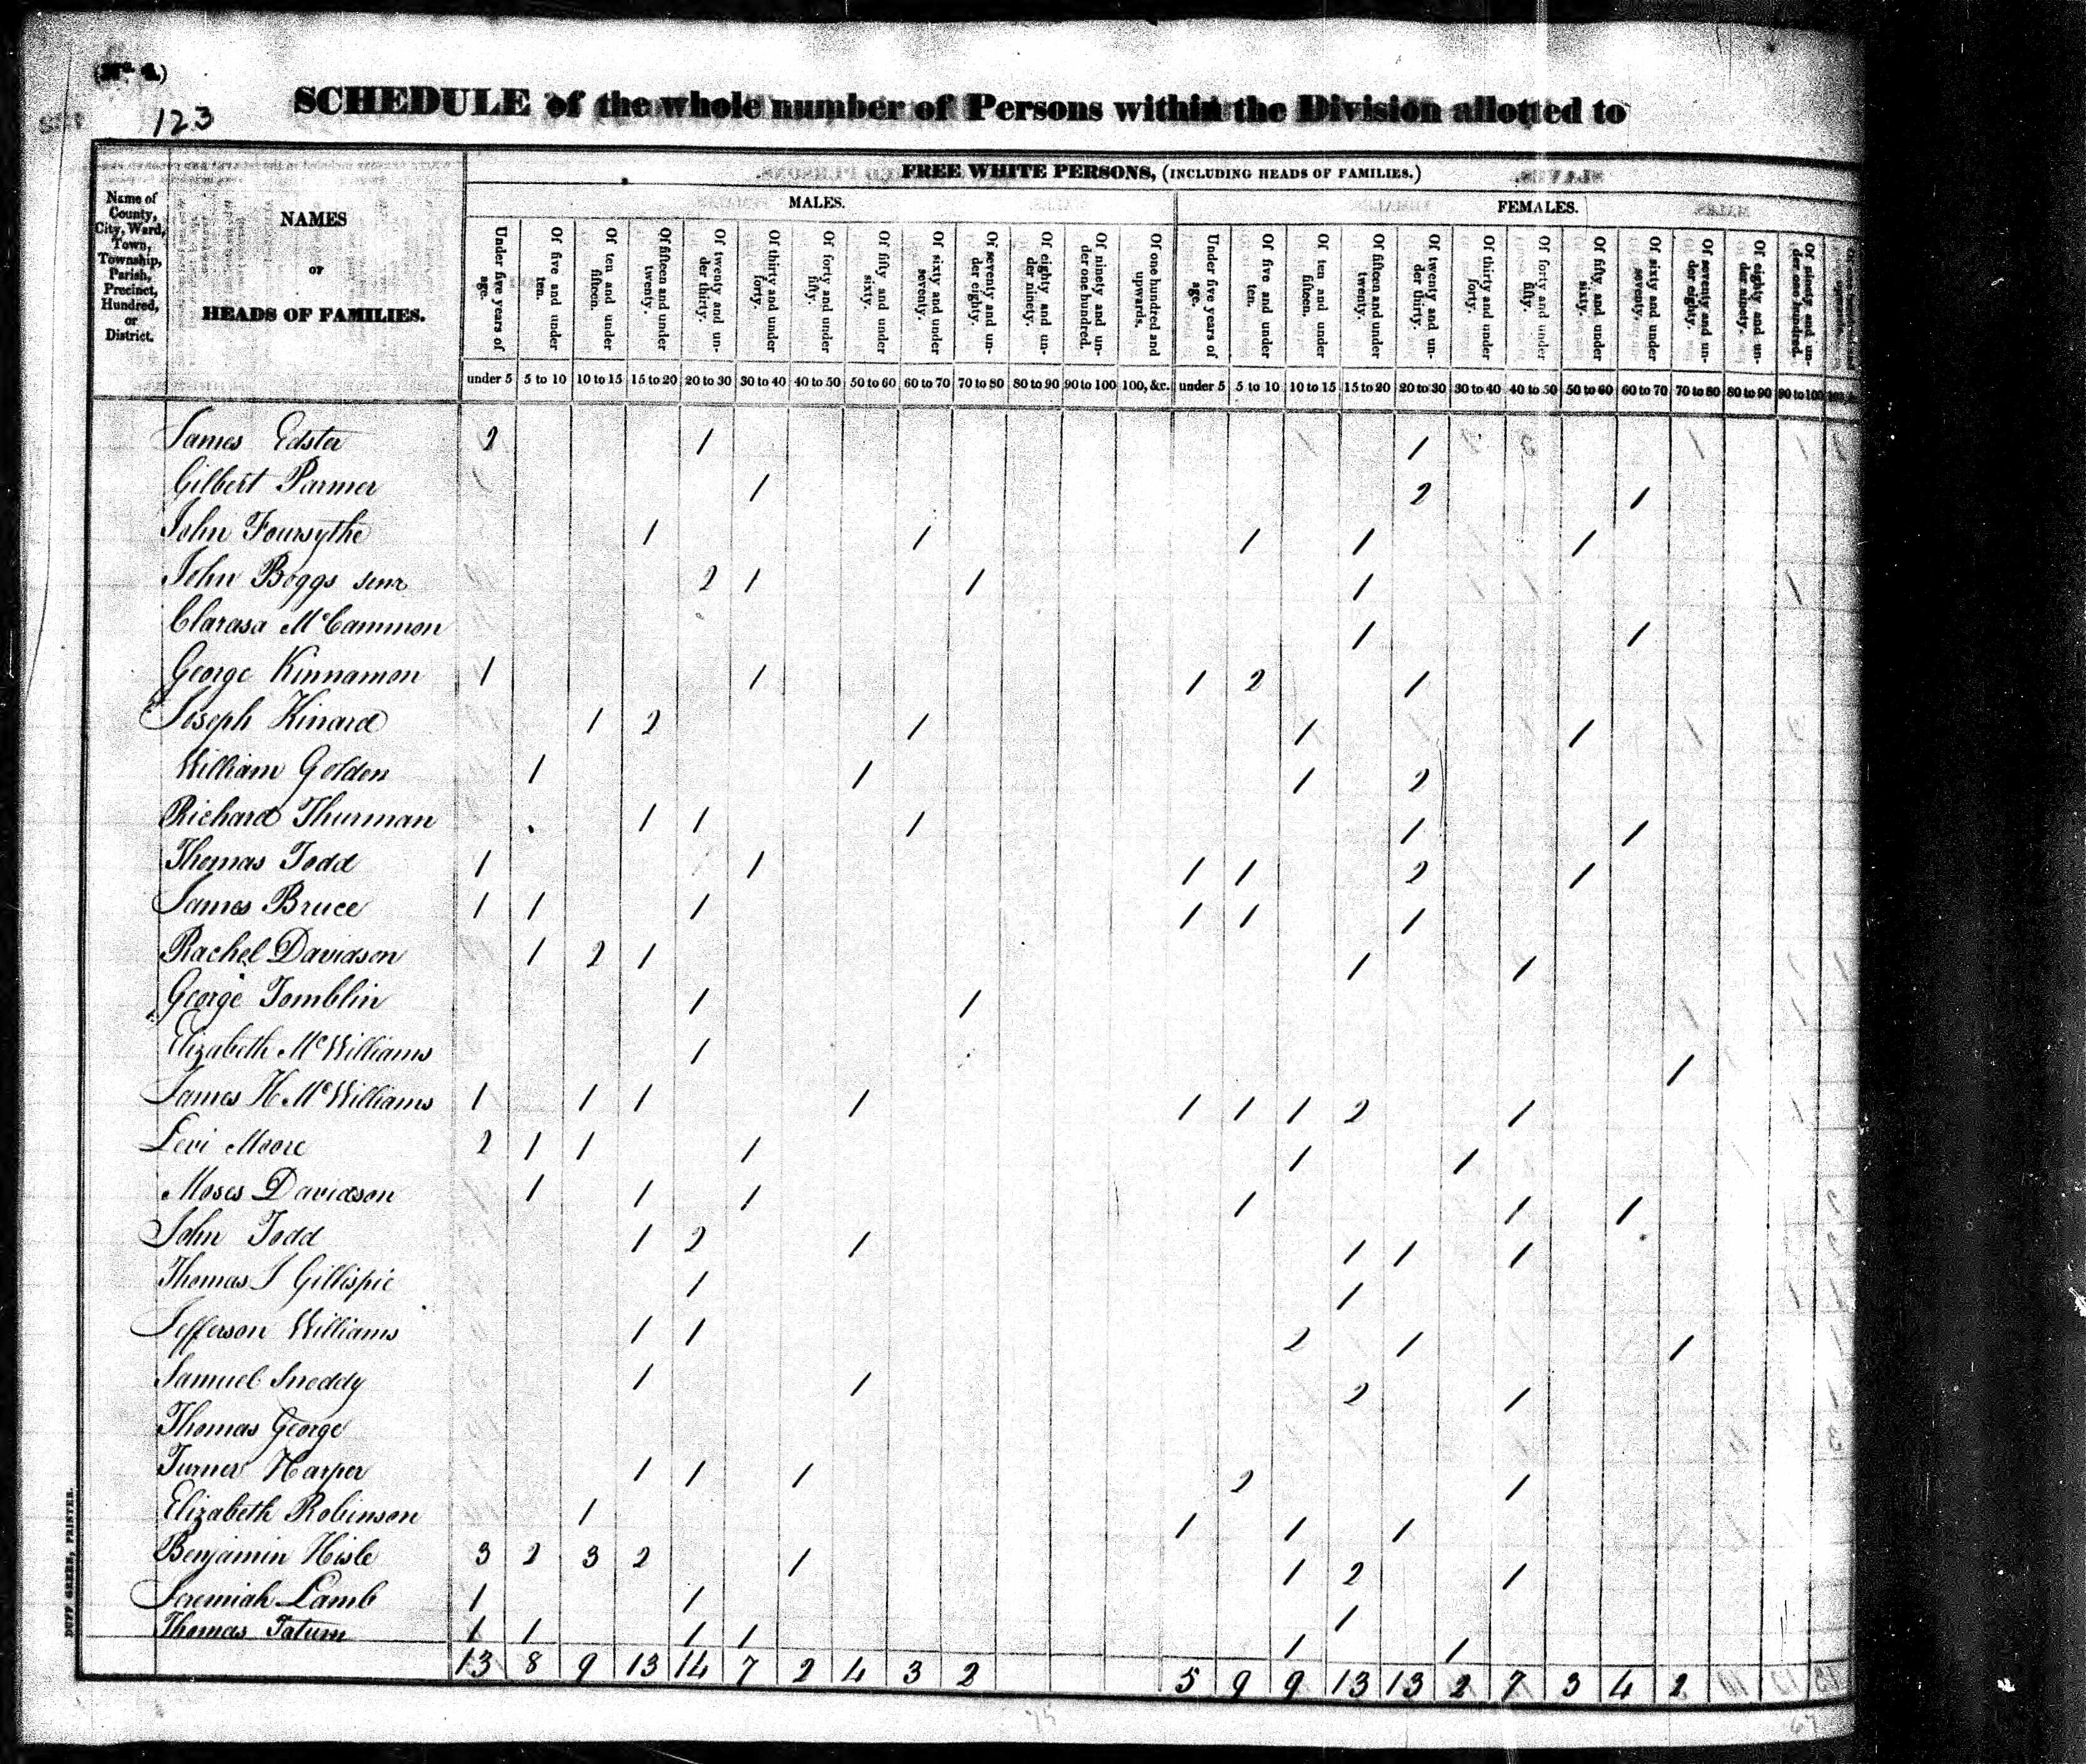 (No. 4.)
123
SCHEDULE of the whole number of Persons within the Division allotted to
FREE WHITE PERSONS, (INCLUDING HEADS OF FAMILIES.)
MALES. FEMALES.
Name of County, City, Ward, Town, Township, Parish, Precinct, Hundred, or District.
NAMES
OF
HEADS OF FAMILIES.
Under five years of age. Of five and under ten. Of ten and under fifteen. Of fifteen and under twenty. Of twenty and under thirty. Of thirty and under forty. Of forty and under fifty. Of fifty and under sixty. Of sixty and under seventy. Of seventy and under eighty. Of eighty and under ninety. Of ninety and under one hundred. Of one hundred and upwards. Under five years of age. Of five and under ten. Of ten and under fifteen. Of fifteen and under twenty. Of twenty and under thirty. Of thirty and under forty. Of forty and under fifty. Of fifty and under sixty. Of sixty and under seventy. Of seventy and under eighty. Of eighty and under ninety. Of ninety and under one hundred.
under 5 5 to 10 10 to 15 15 to 20 20 to 30 30 to 40 40 to 50 50 to 60 60 to 70 70 to 80 80 to 90 90 to 100 100, &c. under 5 5 to 10 10 to 15 15 to 20 20 to 30 30 to 40 40 to 50 50 to 60 60 to 70 70 to 80 80 to 90 90 to 100
James Edster 2 1 1
Gilbert Parmer 1 2 1
John Foursythe 1 1 1 1 1
John Boggs senr 2 1 1 1
Clarasa McCammon 1 1
George Kinnamon 1 1 1 2 1
Joseph Kinard 1 2 1 1 1
William Golden 1 1 1 2
Richard Thurman 1 1 1 1 1
Thomas Todd 1 1 1 1 2 1
James Bruce 1 1 1 1 1 1
Rachel Davidson 1 2 1 1 1
George Tomblin 1 1
Elizabeth McWilliams 1 1
James H McWilliams 1 1 1 1 1 1 1 2 1
Levi Moore 2 1 1 1 1 1
Moses Davidson 1 1 1 1 1 1
John Todd 1 2 1 1 1 1
Thomas J Gillispie 1 1
Jefferson Williams 1 1 2 1 1
Samuel Sneddy 1 1 2 1
Thomas George
Turner Harper 1 1 1 2 1
Elizabeth Robinson 1 1 1 1
Benjamin Hisle 3 2 3 2 1 1 2 1
Jeremiah Lamb 1 1 1
Thomas Tatum 1 1 1 1 1 1
13 8 9 13 14 7 2 4 3 2 5 9 9 13 13 2 7 3 4 2
75 67
DUFF GREEN, PRINTER.